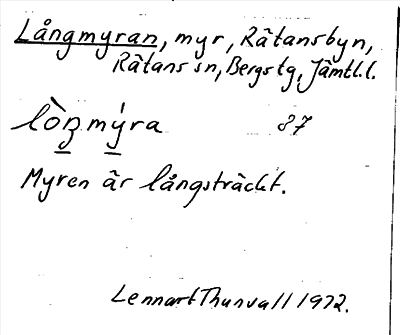 Långmyran, myr, Rätansbyn,
Rätans sn, Bergs tg, Jämtl. l.
lòŋmýra 87
Myren är långsträckt.
Lennart Thunvall 1972.